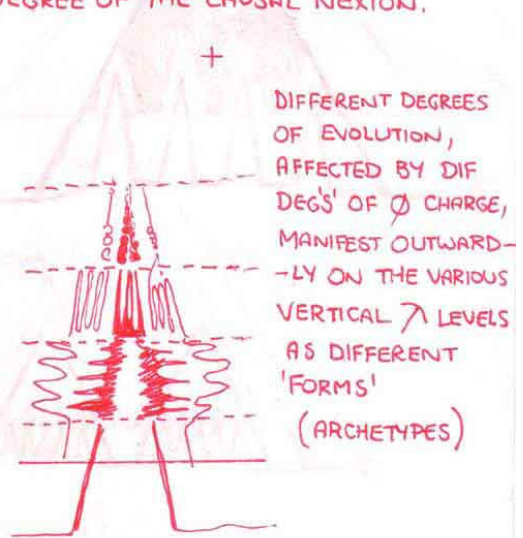 DEGREE OF THE CAUSAL NEXION.
+
DIFFERENT DEGREES
OF EVOLUTION,
AFFECTED BY DIF
DEG'S' OF Ø CHARGE,
MANIFEST OUTWARD-
-LY ON THE VARIOUS
VERTICAL LEVELS
AS DIFFERENT
'FORMS'
(ARCHETYPES)